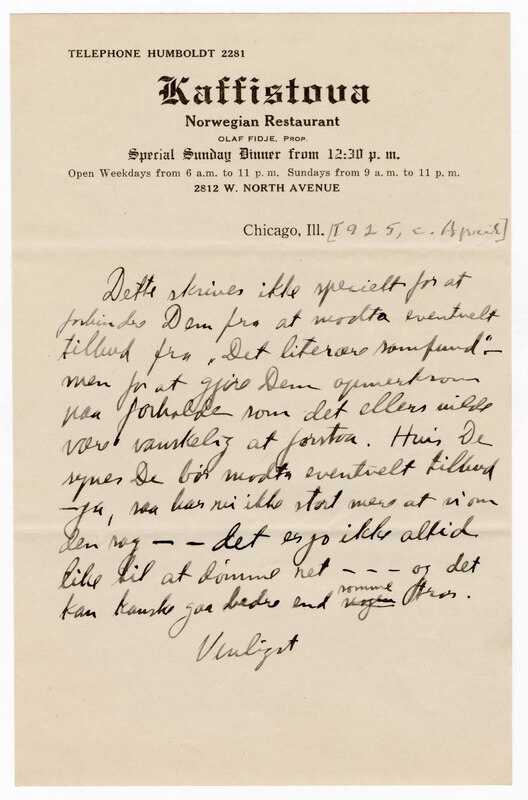 TELEPHONE HUMBOLDT 2281
Kaffistova
Norwegian Restaurant
OLAF FIDJE, PROP.
Special Sunday Dinner from 12:30 p. m.
Open Weekdays from 6 a.m. to 11 p. m. Sundays from 9 a. m. to 11 p. m.
2812 W. NORTH AVENUE
Chicago, Ill. [1925, c. April]
Dette skrives ikke specielt for at
forhindre Dem fra at modta eventuelt
tilbud fra „Det literære samfund" —
men for at gjøre Dem opmerksom
paa forholde som det ellers vilde
være vanskelig at forstaa. Hvis De
synes De bør modta eventuelt tilbud
— ja, saa har vi ikke stort mere at om
den sag — — det er jo ikke altid
like til at dømme ret — — — og det
kan kanske gaa bedre end somme tror.
Venligst